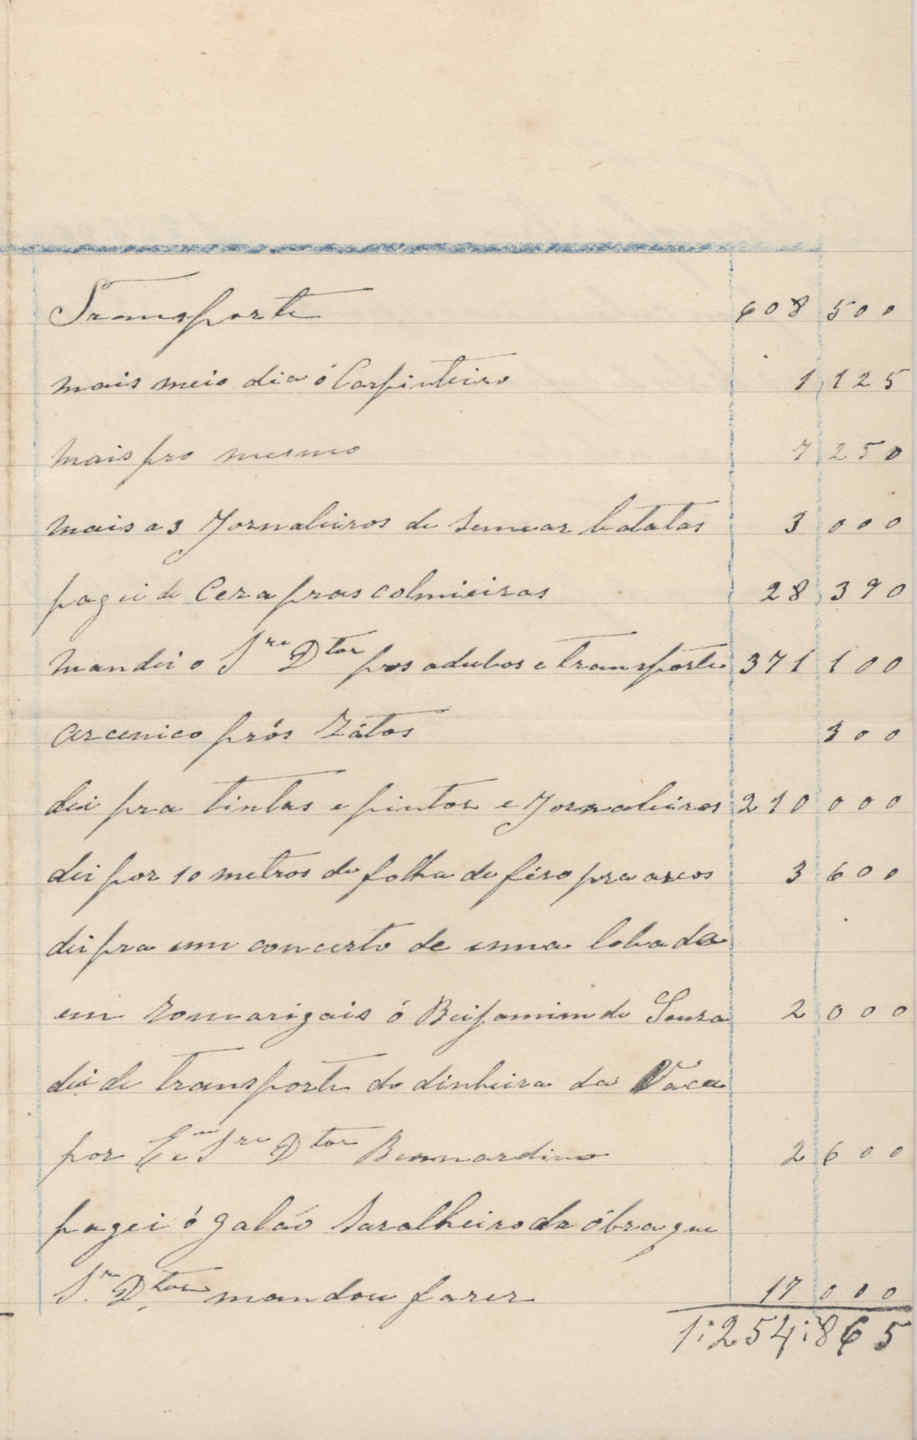 Transporte 608 500
mais meio dia ó Carpinteiro 1,125
Mais pro mesmo 7 250
mais a 3 Jornaleiros de semear batatas 3 000
pagei de Cera pras colmieiras 28 390
Mandei o Snr Dtor pos adubos e transporte 371 100
arcenico prós Rátos 300
dei pra tintas e pintor e Jornaleiros 210 000
dei por 10 metros de folha de féro pra arcos 3 600
dei pra um concerto de uma lobada
em Romarigais ó Beijamim de Souza 2 000
dei de transporte do dinheiro da Váca
por Snr Dtor Bernardino 2 600
pagei ó galáo Saralheiro da óbra que
Sr. Dtor mandou fazer 17 000
1:254:865